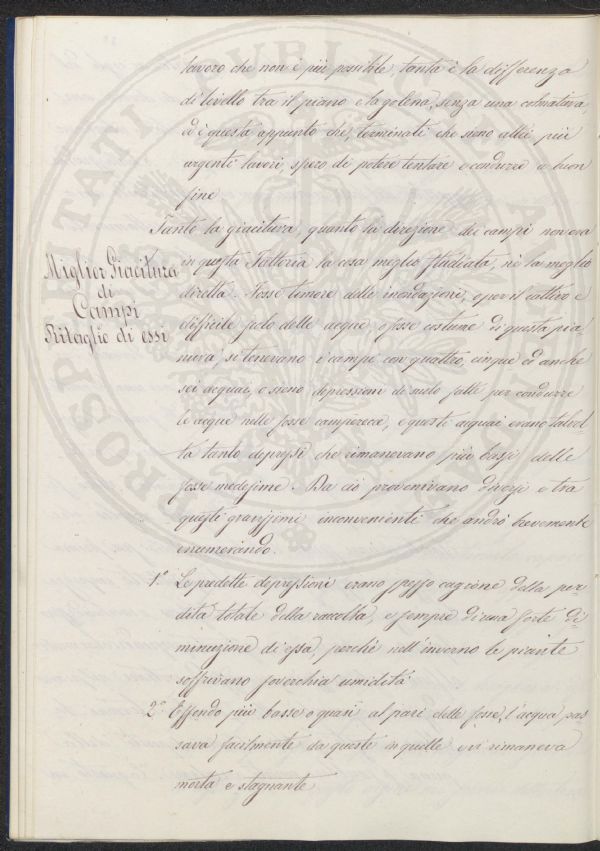 lavoro che non è più possibile, tanta è la differenza
di livello tra il piano e la golena, senza una colmatura,
ed è questa appunto che, terminati che sieno altri più
urgenti lavori, spero di potere tentare e condurre a buon
fine
Tanto la giacitura, quanto la direzione dei campi non era
Miglior Giacitura
di
Campi
Ritaglio di essi
in questa Fattoria la cosa meglio studiata, nè la meglio
diretta. Fosse timore delle inondazioni, o per il cattivo e
difficile scolo delle acque, o fosse costume di questa pia-
nura, si tenevano i campi con quattro, cinque ed anche
sei acquai, o sieno depressioni di suolo fatte per condurre
le acque nelle fosse camperecce, e questi acquai erano talvol-
ta tanto depressi che rimanevano più bassi delle
fosse medesime. Da ciò provenivano diversi e tra
questi gravissimi inconvenienti che andrò brevemente
enumerando.
1º Le predette depressioni erano spesso cagione della per-
dita totale della raccolta, e sempre di una forte di-
minuzione di essa, perchè nell'inverno le piante
soffrivano soverchia umidità
2º Essendo più basse o quasi al pari delle fosse, l'acqua pas
sava facilmente da queste in quelle e vi rimaneva
morta e stagnante
PROSPERITATI PUBLICAE AUGENDAE